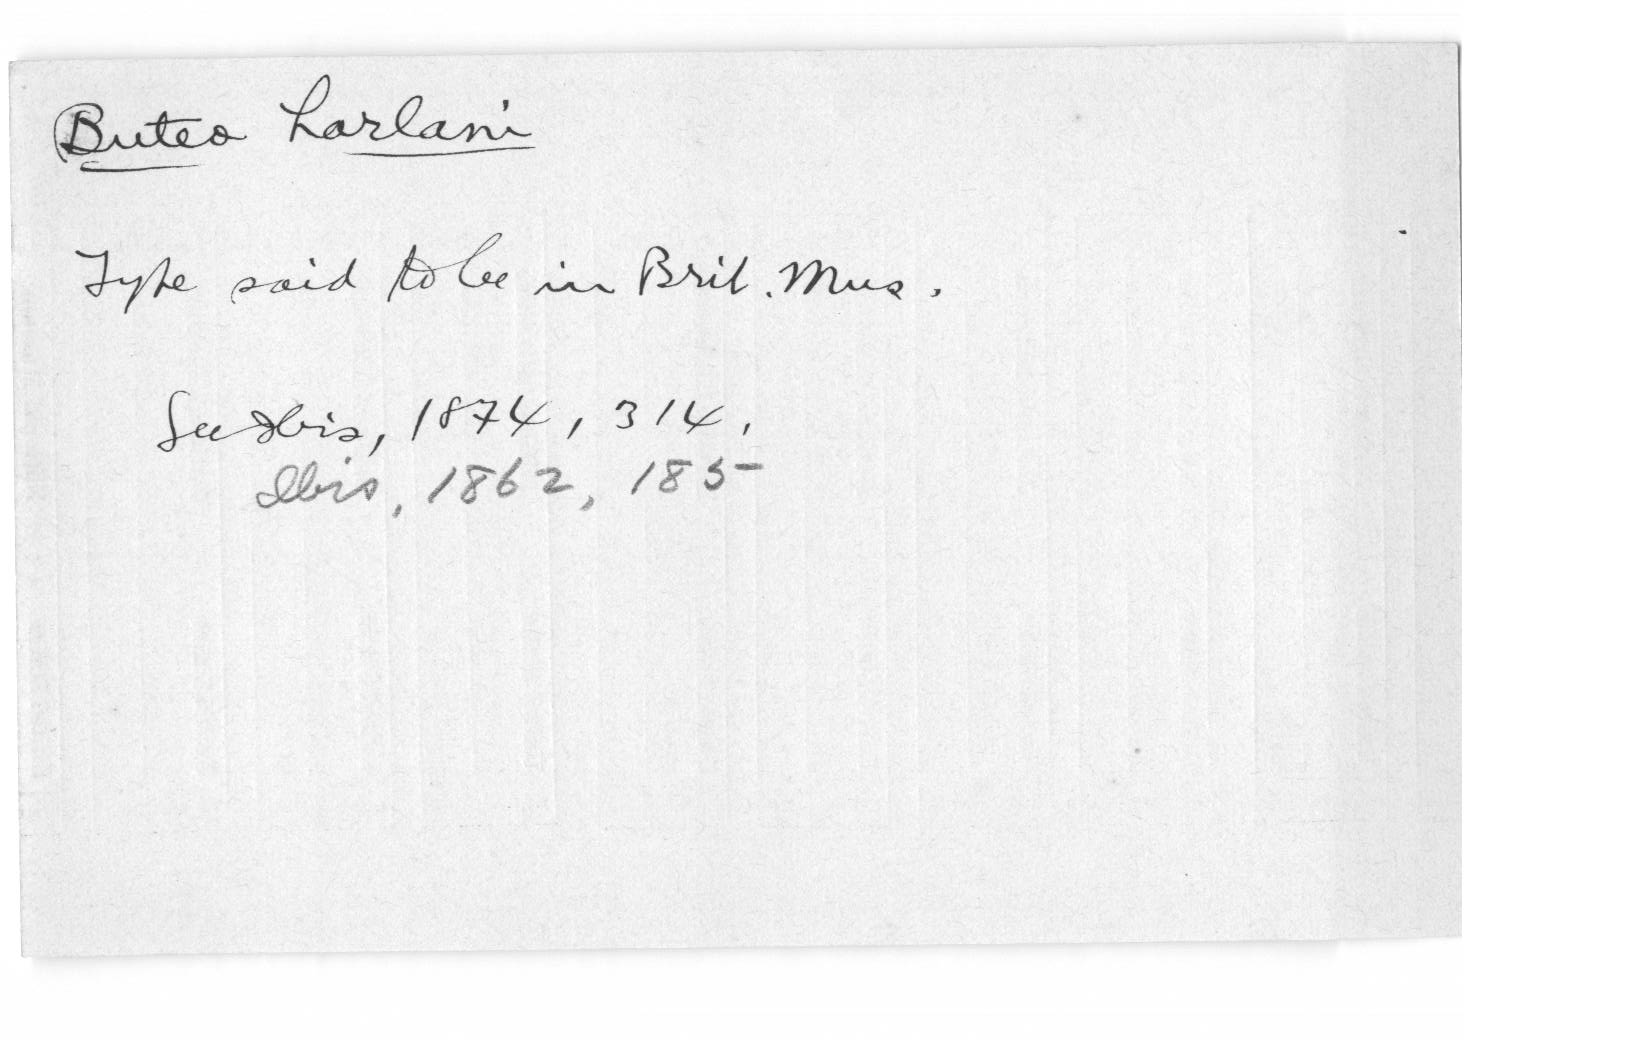 Buteo harlani
Type said to be in Brit. Mus.
See Ibis, 1874, 314.
Ibis, 1862, 185